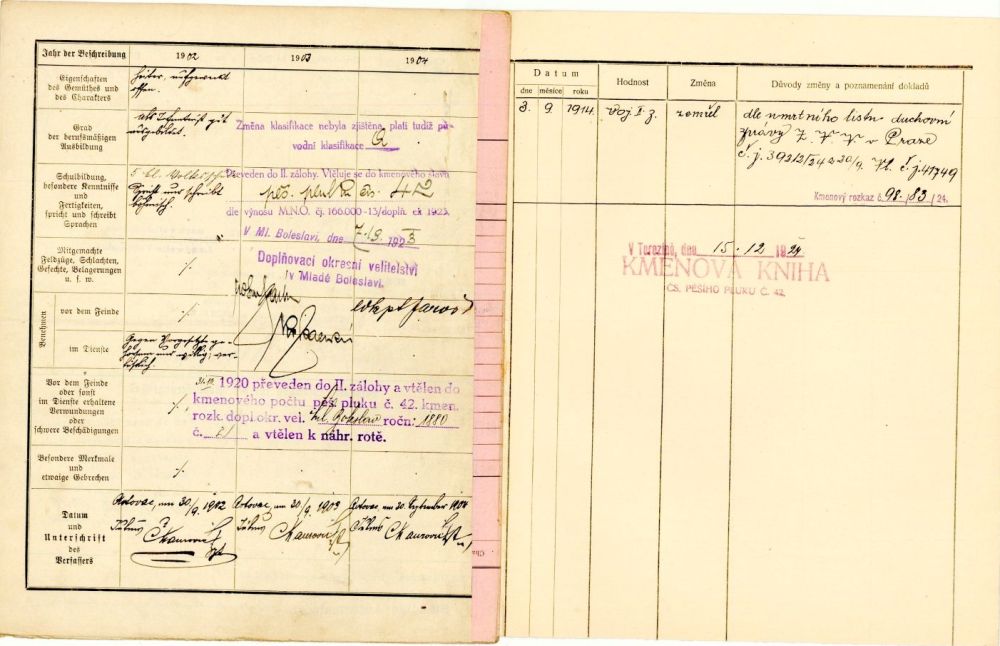 Jahr der Beschreibung 1902 1903 1904
Eigenschaften
des Gemüthes und
des Charakters
heiter, aufgeweckt
offen.
Grad
der berufsmäßigen
Ausbildung
als Infanterist gut
ausgebildet.
Změna klasifikace nebyla zjištěna, platí tudíž pů-
vodní klasifikace A
Schulbildung,
besondere Kenntnisse
und
Fertigkeiten,
spricht und schreibt
Sprachen
5 kl. Volksschule
spricht und schreibt
böhmisch.
Převeden do II. zálohy. Vtěluje se do kmenového stavu
pěš. pluku čís. 42
dle výnosu M.N.O. čj. 166.000-13/doplň. ek 1923.
V Ml. Boleslavi, dne 1923
Doplňovací okresní velitelství
v Mladé Boleslavi.
Mitgemachte
Feldzüge, Schlachten,
Gefechte, Belagerungen
u. s. w.
Benehmen
vor dem Feinde
im Dienste
Gegen Vorgesetzte ge-
horsam und willig, ver-
läßlich.
Vor dem Feinde
oder sonst
im Dienste erhaltene
Verwundungen
oder
schwere Beschädigungen
1920 převeden do II. zálohy a vtělen do
kmenového počtu pěš. pluku č. 42. kmen.
rozk. dopl. okr. vel. Ml. Boleslav ročn: 1880
č. 21 a vtělen k náhr. rotě.
Besondere Merkmale
und
etwaige Gebrechen
Datum
und
Unterschrift
des
Verfassers
am 30./9. 1902 am 30/9. 1903 am 30. September 1904
Datum Hodnost Změna Důvody změny a poznamenání dokladů
dne měsíce roku
3. 9. 1914. voj. I z. zemřel dle úmrtního listu duchovní
správy Z. V. V. v Praze
č. j. 39212/24 z 20/9. Hl. č. j. 41749
Kmenový rozkaz č. 98./83/24.
V Terezíně, dne 15. 12 1924
KMENOVÁ KNIHA
ČS. PĚŠÍHO PLUKU Č. 42.